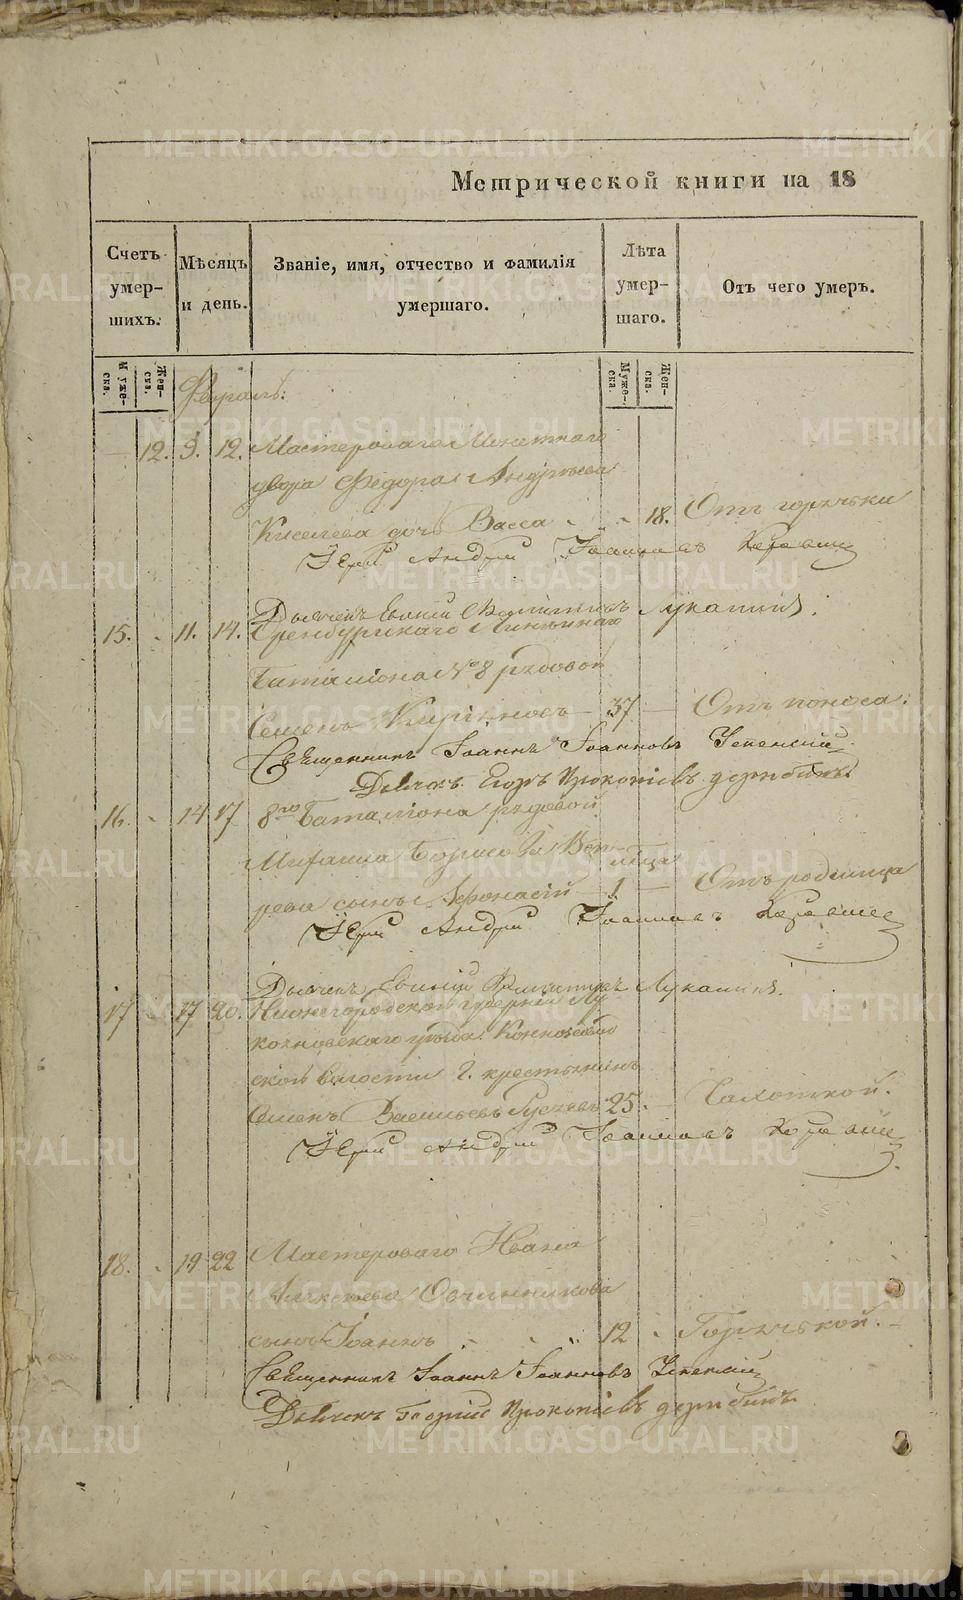 Метрической книги на 18
Счетъ умер-шихъ.
Мѣсяцъ и день.
Званіе, имя, отчество и фамилія умершаго.
Лѣта умер-шаго.
Отъ чего умеръ.
Муже-ска.
Жен-ска.
Муже-ска.
Жен-ска.
Февраль:
12. 9. 12. Мастероваго Монетнаго
двора Федора Андреева
Киселева дочь Васса 18. Отъ горячки
Іерей Андрей Іоанновъ
Дьячекъ Лукашинъ.
15. 11. 14. Оренбургскаго Линейнаго
Баталіона № 8 рядовой
Семенъ 37 Отъ поноса.
Священникъ Іоаннъ Іоанновъ Успенскій
Дьячекъ Егоръ Прокопіевъ
16. 14 17 8го Баталіона рядовой
Михаила Борисова
сынъ Афонасій 1 Отъ родимца
Іерей Андрей Іоанновъ
Дьячекъ Лукашинъ.
17 17 20. Нижегородской губерніи Лу
кояновскаго уѣзда
ской волости Г. крестьянинъ
Семенъ Васильевъ 25. Чахоткой.
Іерей Андрей Іоанновъ
18. 19 22 Мастероваго Ивана
Алексѣева Овчинникова
сынъ Іоаннъ 12 Горячкой.
Священникъ Іоаннъ Іоанновъ Успенскій
Дьячекъ Георгій Прокопіевъ
METRIKI.GASO-URAL.RU